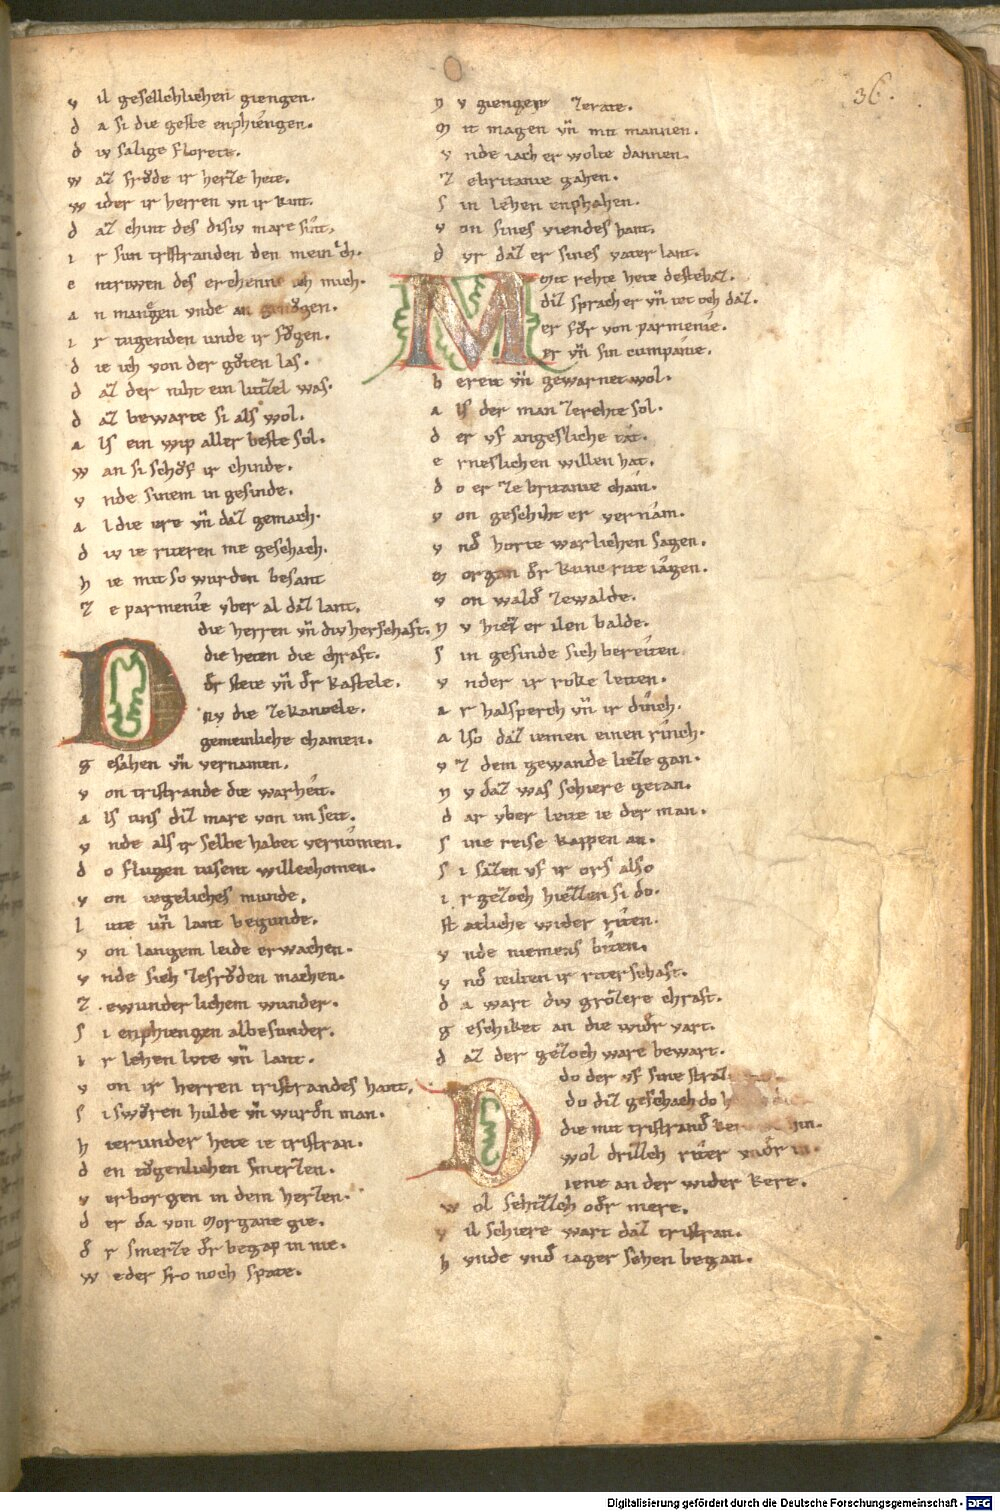 36.
v il gesellechlichen giengen.
d a si die geste enphiengen.
d iv salige florete.
w az froͮde ir herze hete.
w ider ir herren vn ir kint.
d az chint des disiv mare sint.
i r sun tristranden den mein ich.
e ntriwen des erchenne ich mich.
a n mangen vnde an genoͮgen.
i r tugenden unde ir foͮgen.
d ie ich von der goͮten las.
d az der niht ein luzzel was.
d az bewarte si als wol.
a ls ein wip aller beste sol.
w an si schoͮf ir chinde.
v nde sinem in gesinde.
a l die ere vn̄ daz gemach.
d iv ie riteren me geschach.
h ie mit so wurden besant
z e parmenie vber al daz lant.
D die herren vn̄ div herschaft.
die heten die chraft.
dr stete vn̄ dr kastele.
nv die ze kanoele.
gemeinliche chamen.
g esahen vn̄ vernamen.
v on tristrande die warheit.
a ls uns diz mare von im seit.
v nde als ir selbe habet vernomen.
d o flugen tusent willechomen.
v on iegeliches munde.
l ute un̄ lant begunde.
v on langem leide erwachen.
v nde sich ze froͮden machen.
z ewunderlichem wunder.
s i enphiengen albesunder.
i r lehen lvte vn̄ lant.
v on ir herren tristrandes hant.
s i swoͮren hulde vn̄ wurdn man.
h ierunder hete ie tristran.
d en toͮgenlichen smerzen.
v erborgen in dem herzen.
d er da von Morgane gie.
d r smerze dr begap in nie.
w eder fro noch spate.
n v giengen zerate.
m it magen vn̄ mit mannen.
v nde iach er wolte dannen.
z ebritanie gahen.
s in lehen enphahen.
v on sines viendes hant.
d vr daz er sines vater lant.
M mit rehte hete destebaz.
diz sprach er vn̄ tet och daz.
er foͮr von parmenie.
er vn̄ sin cumpanie.
b ereit vn̄ gewarnet wol.
a ls der man zerehte sol.
d er vf angesliche tat.
e rneslichen willen hat.
d o er ze britanie cham.
v on geschiht er vernam.
v nd horte warlichen sagen.
m organ dr kunc rite iagen.
v on wald zewalde.
n v hiez er ilen balde.
s in gesinde sich bereiten.
v nder ir roke leiten.
a r halsperch vn̄ ir dinch.
a lso daz iemen einen rinch.
v z dem gewande lieze gan.
n v daz was schiere getan.
d ar vber leite ie der man.
s ine reise kappen an.
s i sazen vf ir ors also
i r gezoch hiezzen si do.
st atliche wider riten.
v nde niemens biten.
v nd teilten ir riterschaft.
d a wart div grozere chraft.
g eschiket an die widr vart.
d az der gezoch ware bewart.
D do der vf sine straz
do diz geschach do
die mit tristrand
wol drizzech riter
iene an der wider kere.
w ol sehzzech odr mere.
v il schiere wart daz tristran.
h vnde vnd iager sehen began.
Digitalisierung gefördert durch die Deutsche Forschungsgemeinschaft - DFG